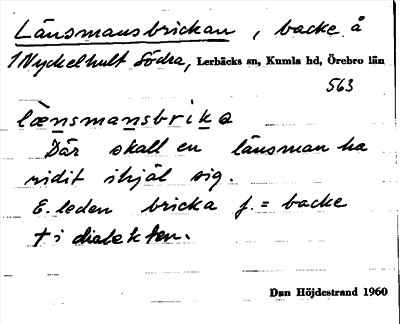 Länsmansbrickan, backe å
1 Nyckelhult Södra, Lerbäcks sn, Kumla hd, Örebro län
563
länsmansbrika
Där skall en länsman ha
ridit ihjäl sig.
E. leden bricka f. = backe
† i dialekten.
Dan Höjdestrand 1960